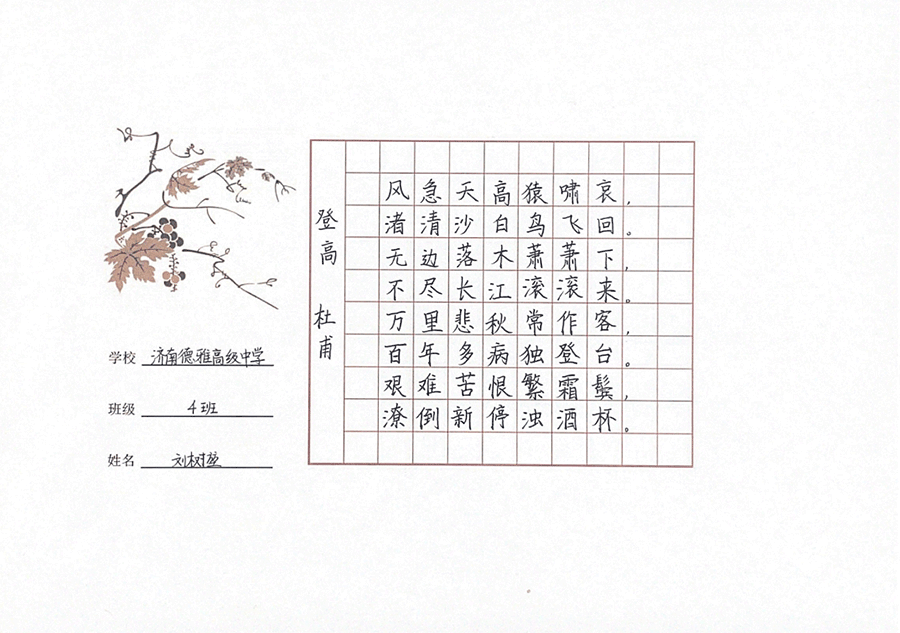 登高 杜甫
风急天高猿啸哀，
渚清沙白鸟飞回。
无边落木萧萧下，
不尽长江滚滚来。
万里悲秋常作客，
百年多病独登台。
艰难苦恨繁霜鬓，
潦倒新停浊酒杯。
学校 济南德雅高级中学
班级 4班
姓名 刘树